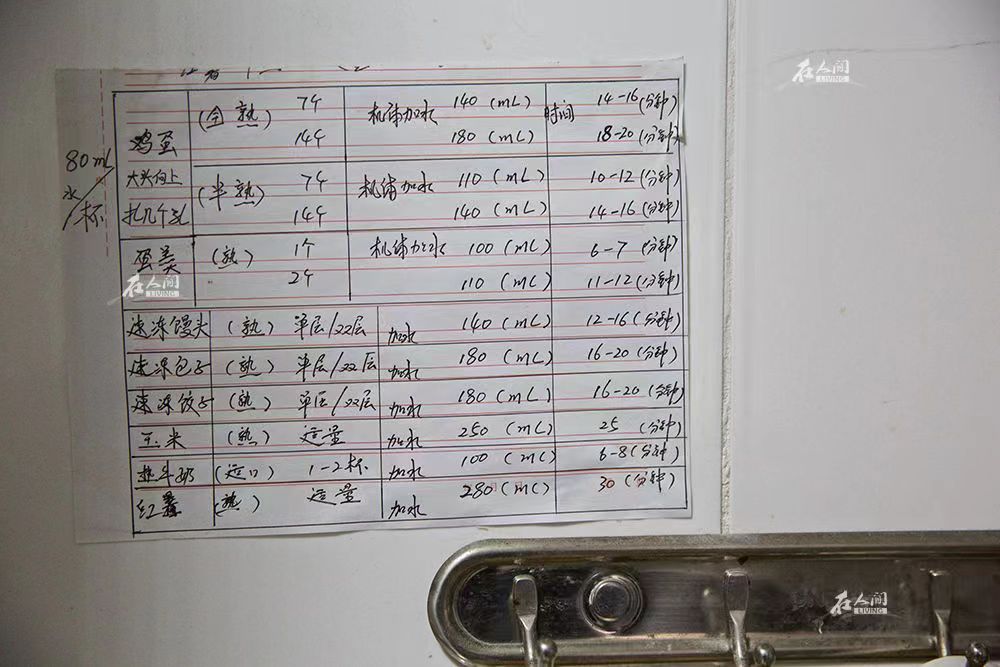 在人间
LIVING
80mL
水/杯
鸡蛋
大头向上
扎几个孔
(全熟) 7个 机体加水 140(mL) 时间 14-16(分钟)
14个 180(mL) 18-20(分钟)
(半熟) 7个 机体加水 110(mL) 10-12(分钟)
14个 140(mL) 14-16(分钟)
蛋羹 (熟) 1个 机体加水 100(mL) 6-7(分钟)
2个 110(mL) 11-12(分钟)
在人间
LIVING
速冻馒头 (熟) 单层/双层 加水 140(mL) 12-16(分钟)
速冻包子 (熟) 单层/双层 加水 180(mL) 16-20(分钟)
速冻饺子 (熟) 单层/双层 加水 180(mL) 16-20(分钟)
玉米 (熟) 适量 加水 250(mL) 25(分钟)
热牛奶 (适口) 1-2杯 加水 100(mL) 6-8(分钟)
红薯 (熟) 适量 加水 280(mL) 30(分钟)
在人间
LIVING